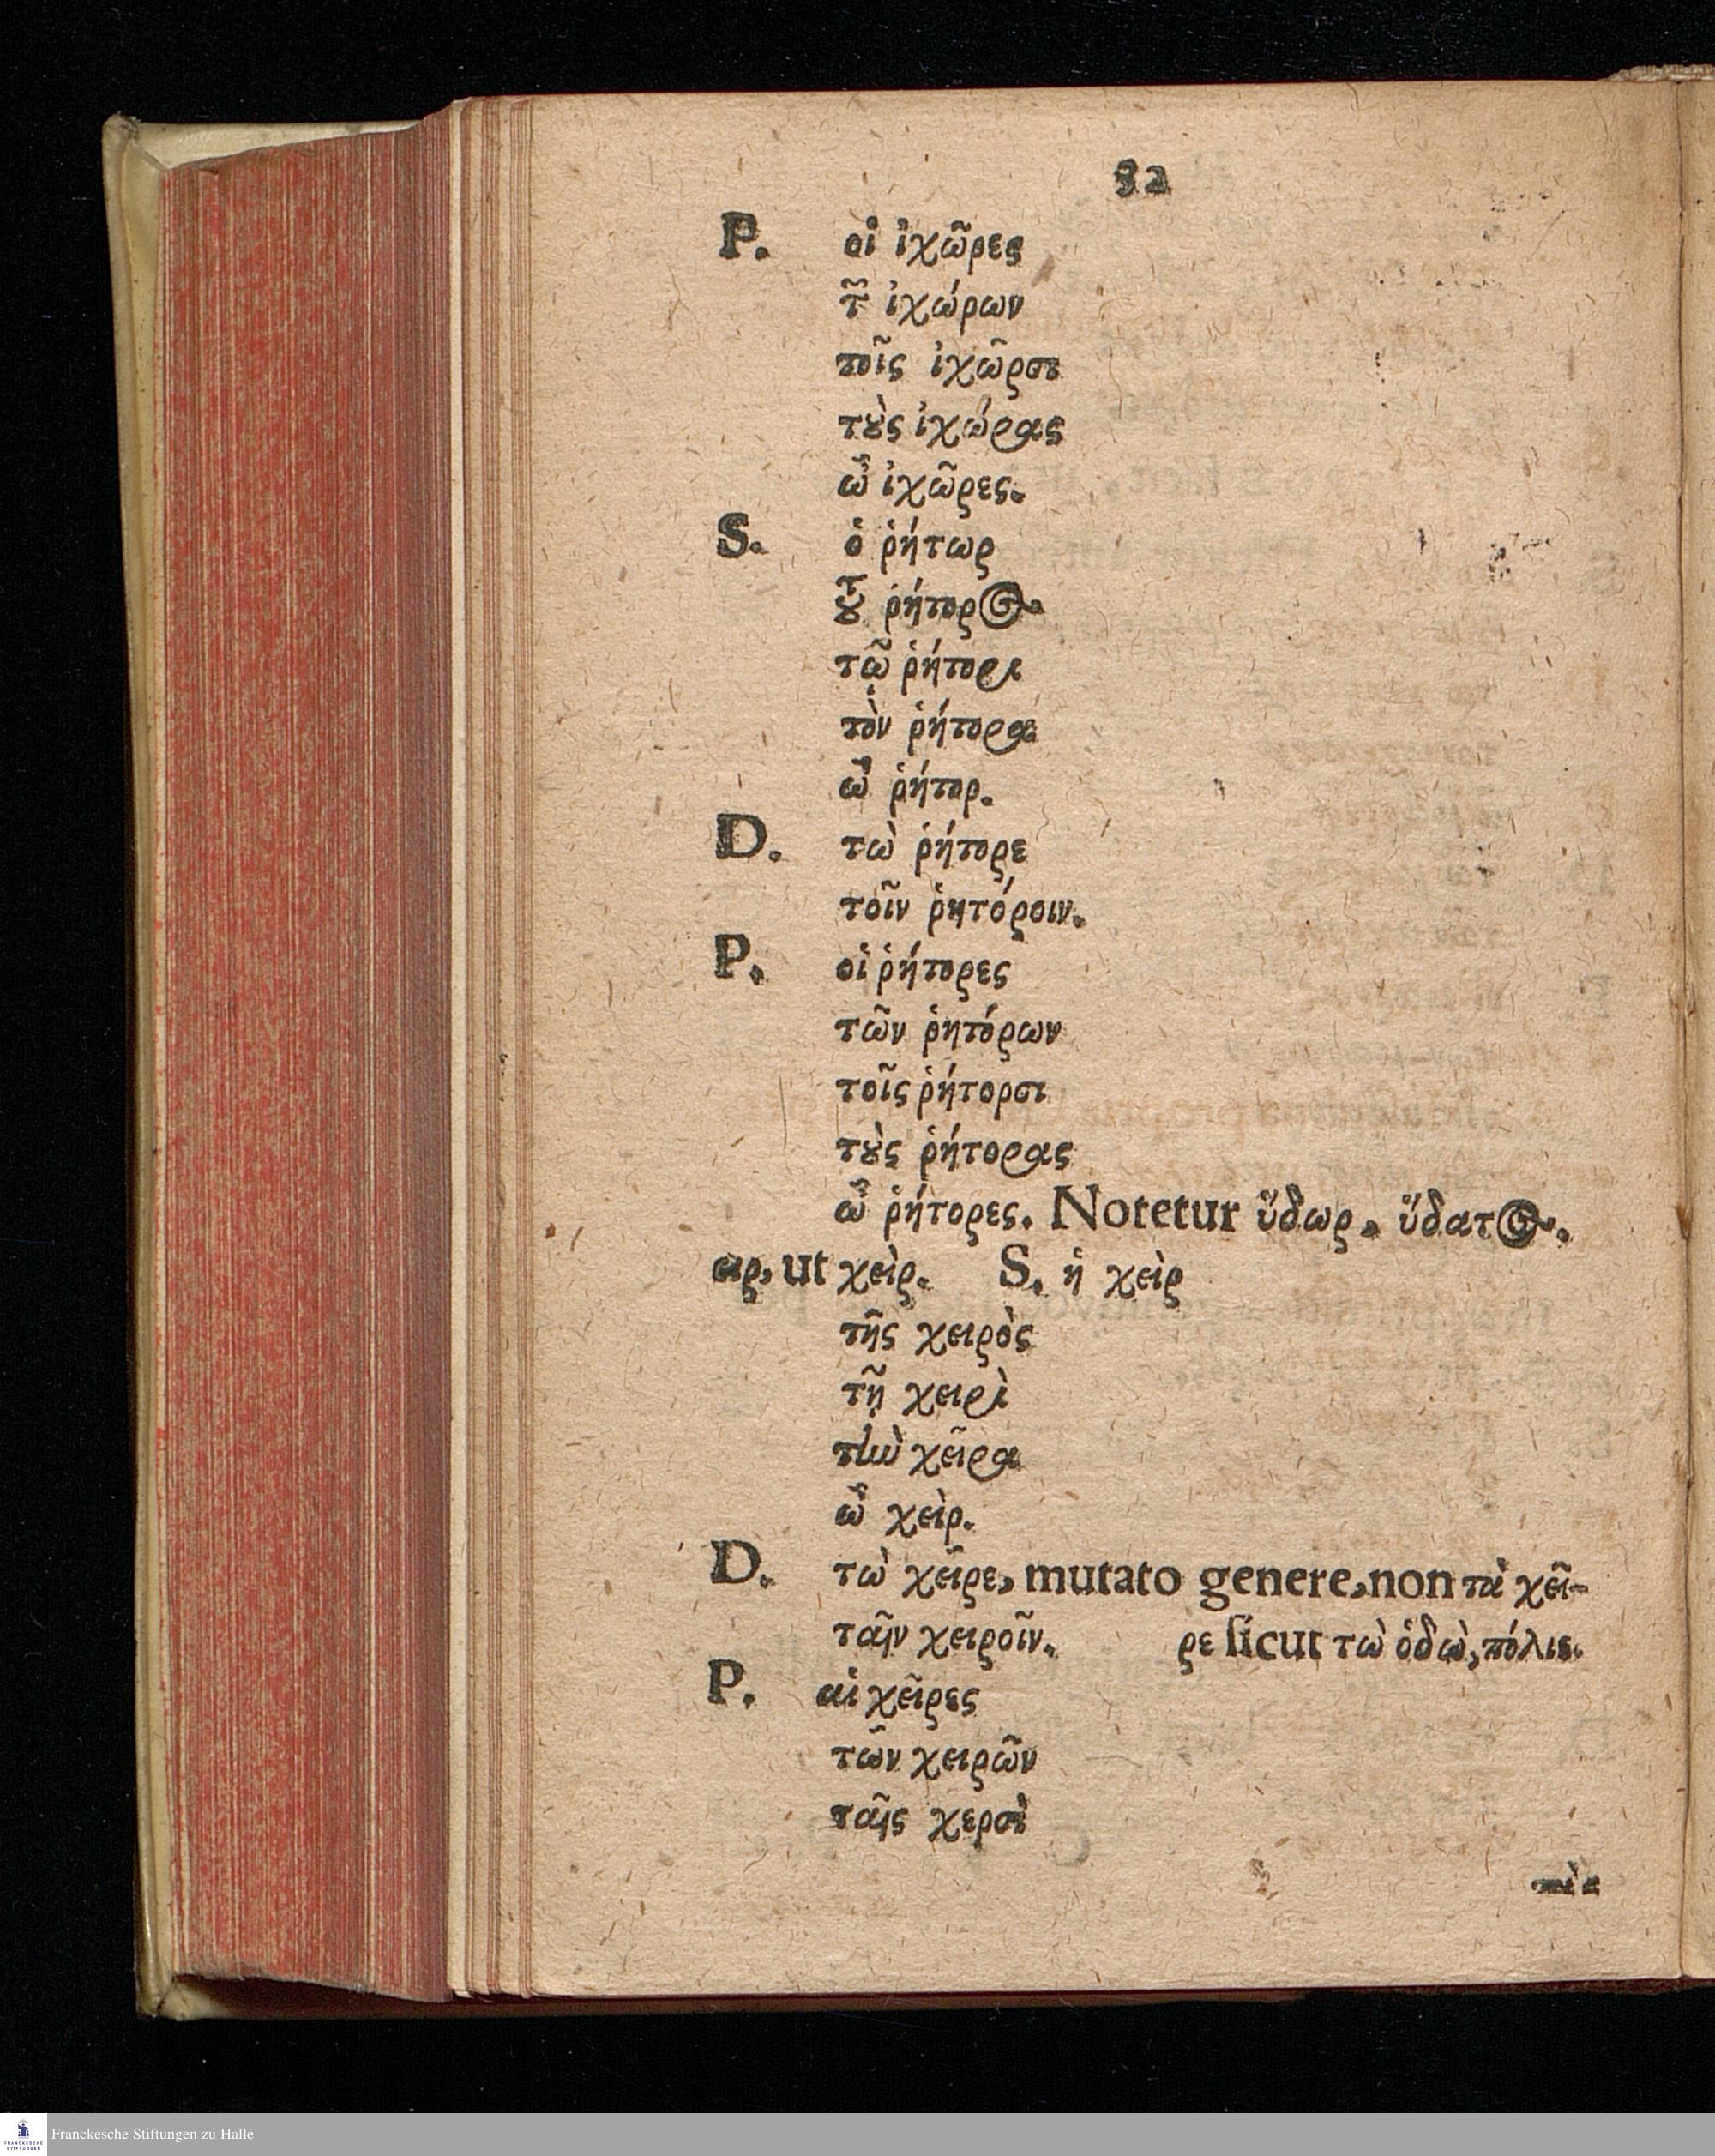 32
P. οἱ ἰχῶρες
τ῀ ἰχώρων
τοῖς ἰχῶρσι
τȣ̀ς ἰχώρας
ὦ ἰχῶρες.
S. ὁ ῥήτωρ
τȣ͂ ῥήτορος
τῷ ῥήτορι
τὸν ῥήτορα
ὦ ῥήτορ.
D. τὼ ῥήτορε
τοῖν ῥητόροιν.
P. οἱ ῥήτορες
τῶν ῥητόρων
τοῖς ῥήτορσι
τȣ̀ς ῥήτορας
ὦ ῥήτορες. Notetur ὕδωρ, ὕδατος.
ειρ, ut χεὶρ. S. ἡ χεὶρ
τῆς χειρὸς
τῇ χειρὶ
τὴν χεῖρα
ὦ χεὶρ.
D. τὼ χεῖρε, mutato genere, non τὰ χεῖ-
ταῖν χειροῖν. ρε sicut τὼ ὁδὼ, πόλιε.
P. αἱ χεῖρες
τῶν χειρῶν
ταῖς χερσὶ
Franckesche Stiftungen zu Halle
FRANCKESCHE
STIFTUNGEN